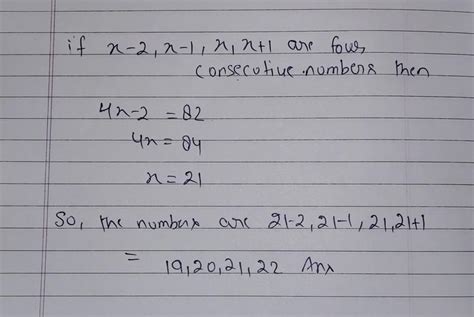 if x-2, x-1, x, x+1 are four
consecutive numbers then
4x-2 = 82
4x = 84
x = 21
So, the numbers are 21-2, 21-1, 21, 21+1
=
19, 20, 21, 22 Ans